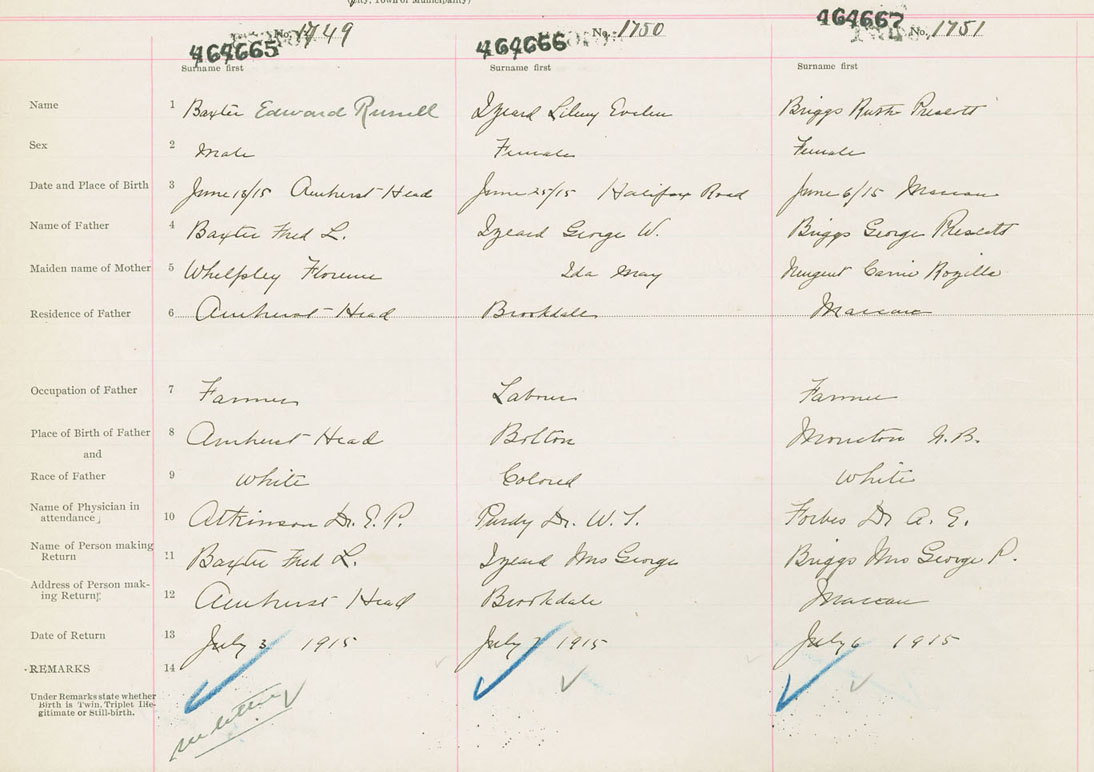 (City, Town or Municipality)
464665 No. 1749 464666 No. 1750 464667 No. 1751
Surname first Surname first Surname first
Name 1 Baxter Edward Russell Izzard Evelyn Briggs Ruth Prescott
Sex 2 Male Female Female
Date and Place of Birth 3 June 15/15 Amherst Head June 25/15 Halifax Road June 6/15 Maccan
Name of Father 4 Baxter Fred L. Izzard George W. Briggs George Prescott
Maiden name of Mother 5 Whelpley Florence Ida May Nugent Carrie Rozilla
Residence of Father 6 Amherst Head Brookdale Maccan
Occupation of Father 7 Farmer Labour Farmer
Place of Birth of Father 8 Amherst Head Bolton Moncton N.B.
and
Race of Father 9 White Colored White
Name of Physician in
attendance 10 Atkinson Dr. E. P. Purdy Dr. W. T. Forbes Dr A. E.
Name of Person making
Return 11 Baxter Fred L. Izzard Mrs George Briggs Mrs George P.
Address of Person mak-
ing Return 12 Amherst Head Brookdale Maccan
Date of Return 13 July 3 1915 July 7 1915 July 6 1915
REMARKS 14
Under Remarks state whether
Birth is Twin, Triplet Ille-
gitimate or Still-birth.
see letter